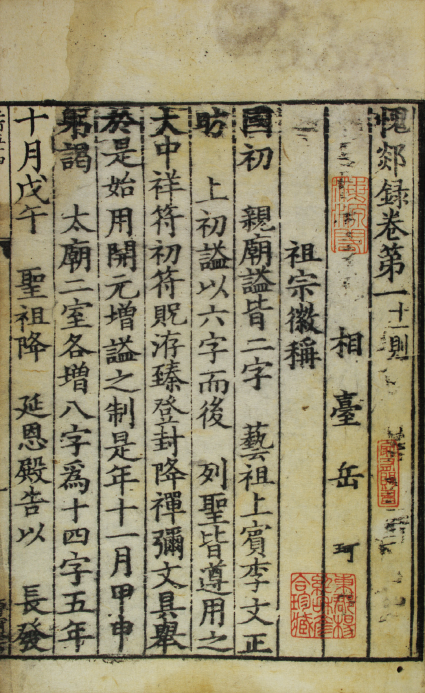 愧郯録卷第一 十一則
相臺岳珂
祖宗徽稱
國初 親廟謚皆二字 藝祖上賓李文正
昉 上初謚以六字而後 列聖皆遵用之
大中祥符初符貺洊臻登封降禪彌文具舉
於是始用開元增謚之制是年十一月甲申
躬謁 太廟二室各增八字爲十四字五年
十月戊午 聖祖降 延恩殿告以 長發